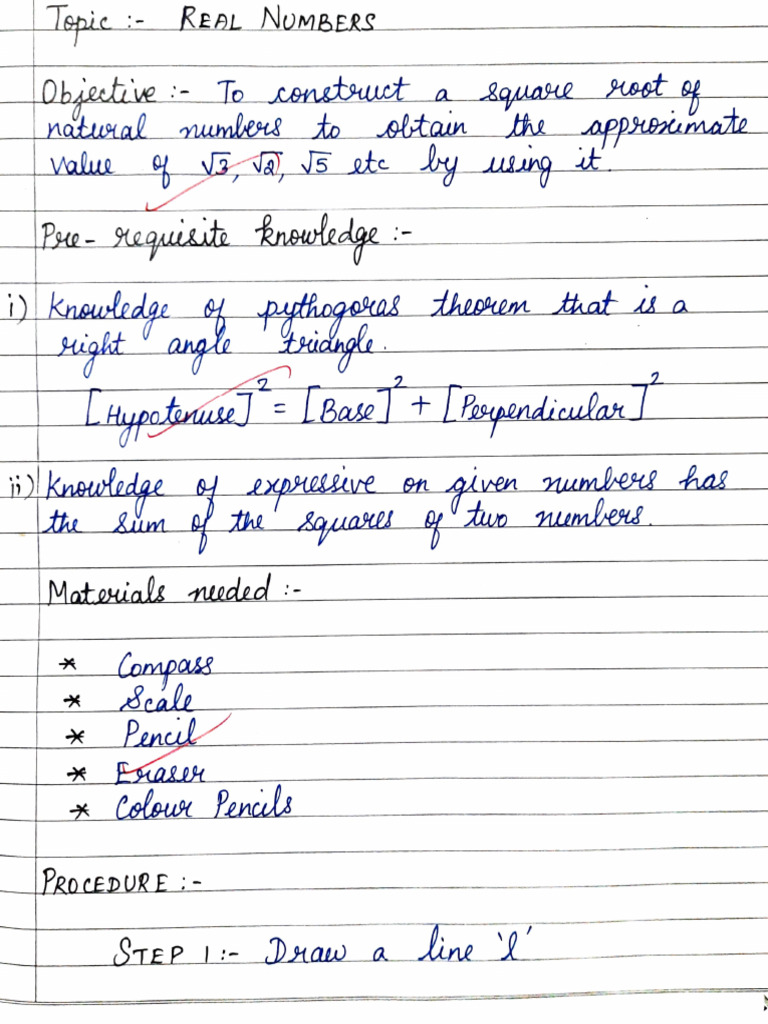 Topic :- REAL NUMBERS
Objective :- To construct a square root of
natural numbers to obtain the approximate
value of √3, √2, √5 etc by using it.
Pre-requisite knowledge :-
i) Knowledge of pythogoras theorem that is a
right angle triangle.
[Hypotenuse]² = [Base]² + [Perpendicular]²
ii) Knowledge of expressive on given numbers has
the sum of the squares of two numbers.
Materials needed :-
* Compass
* Scale
* Pencil
* Eraser
* Colour Pencils
PROCEDURE :-
STEP 1 :- Draw a line 'l'